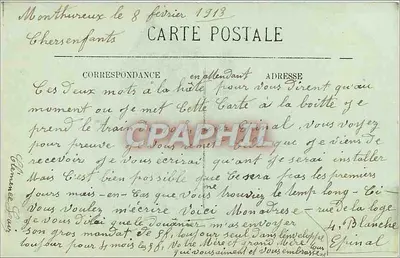 Monthureux le 8 février 1913
Chers enfants
CARTE POSTALE
CORRESPONDANCE en attendant ADRESSE
Ces deux mots à la hate pour vous dirent qu'au
moment ou je met Cette Carte à la boitte je
prend le train Epinal, Vous voyez
pour preuve que je viens de
recevoir je vous écrirai quant je serai installer
Mais C'est bien possible que Ce sera pas les premiers
jours mais en Cas que vous trouviez le temp long - Ci
vous voulez m'écrire Voici Mon adresse - rue de la loge
je vous dirai que le douanier m'as envoyer 4. Blanche
son gros mandat de 5f, toujour seul dans l'enveloppe Epinal
toujour pour 4 mois et 5f, Votre Mère et grand Mère
qui vous aiment et vous embrassent
Clémence
CPAPHIL